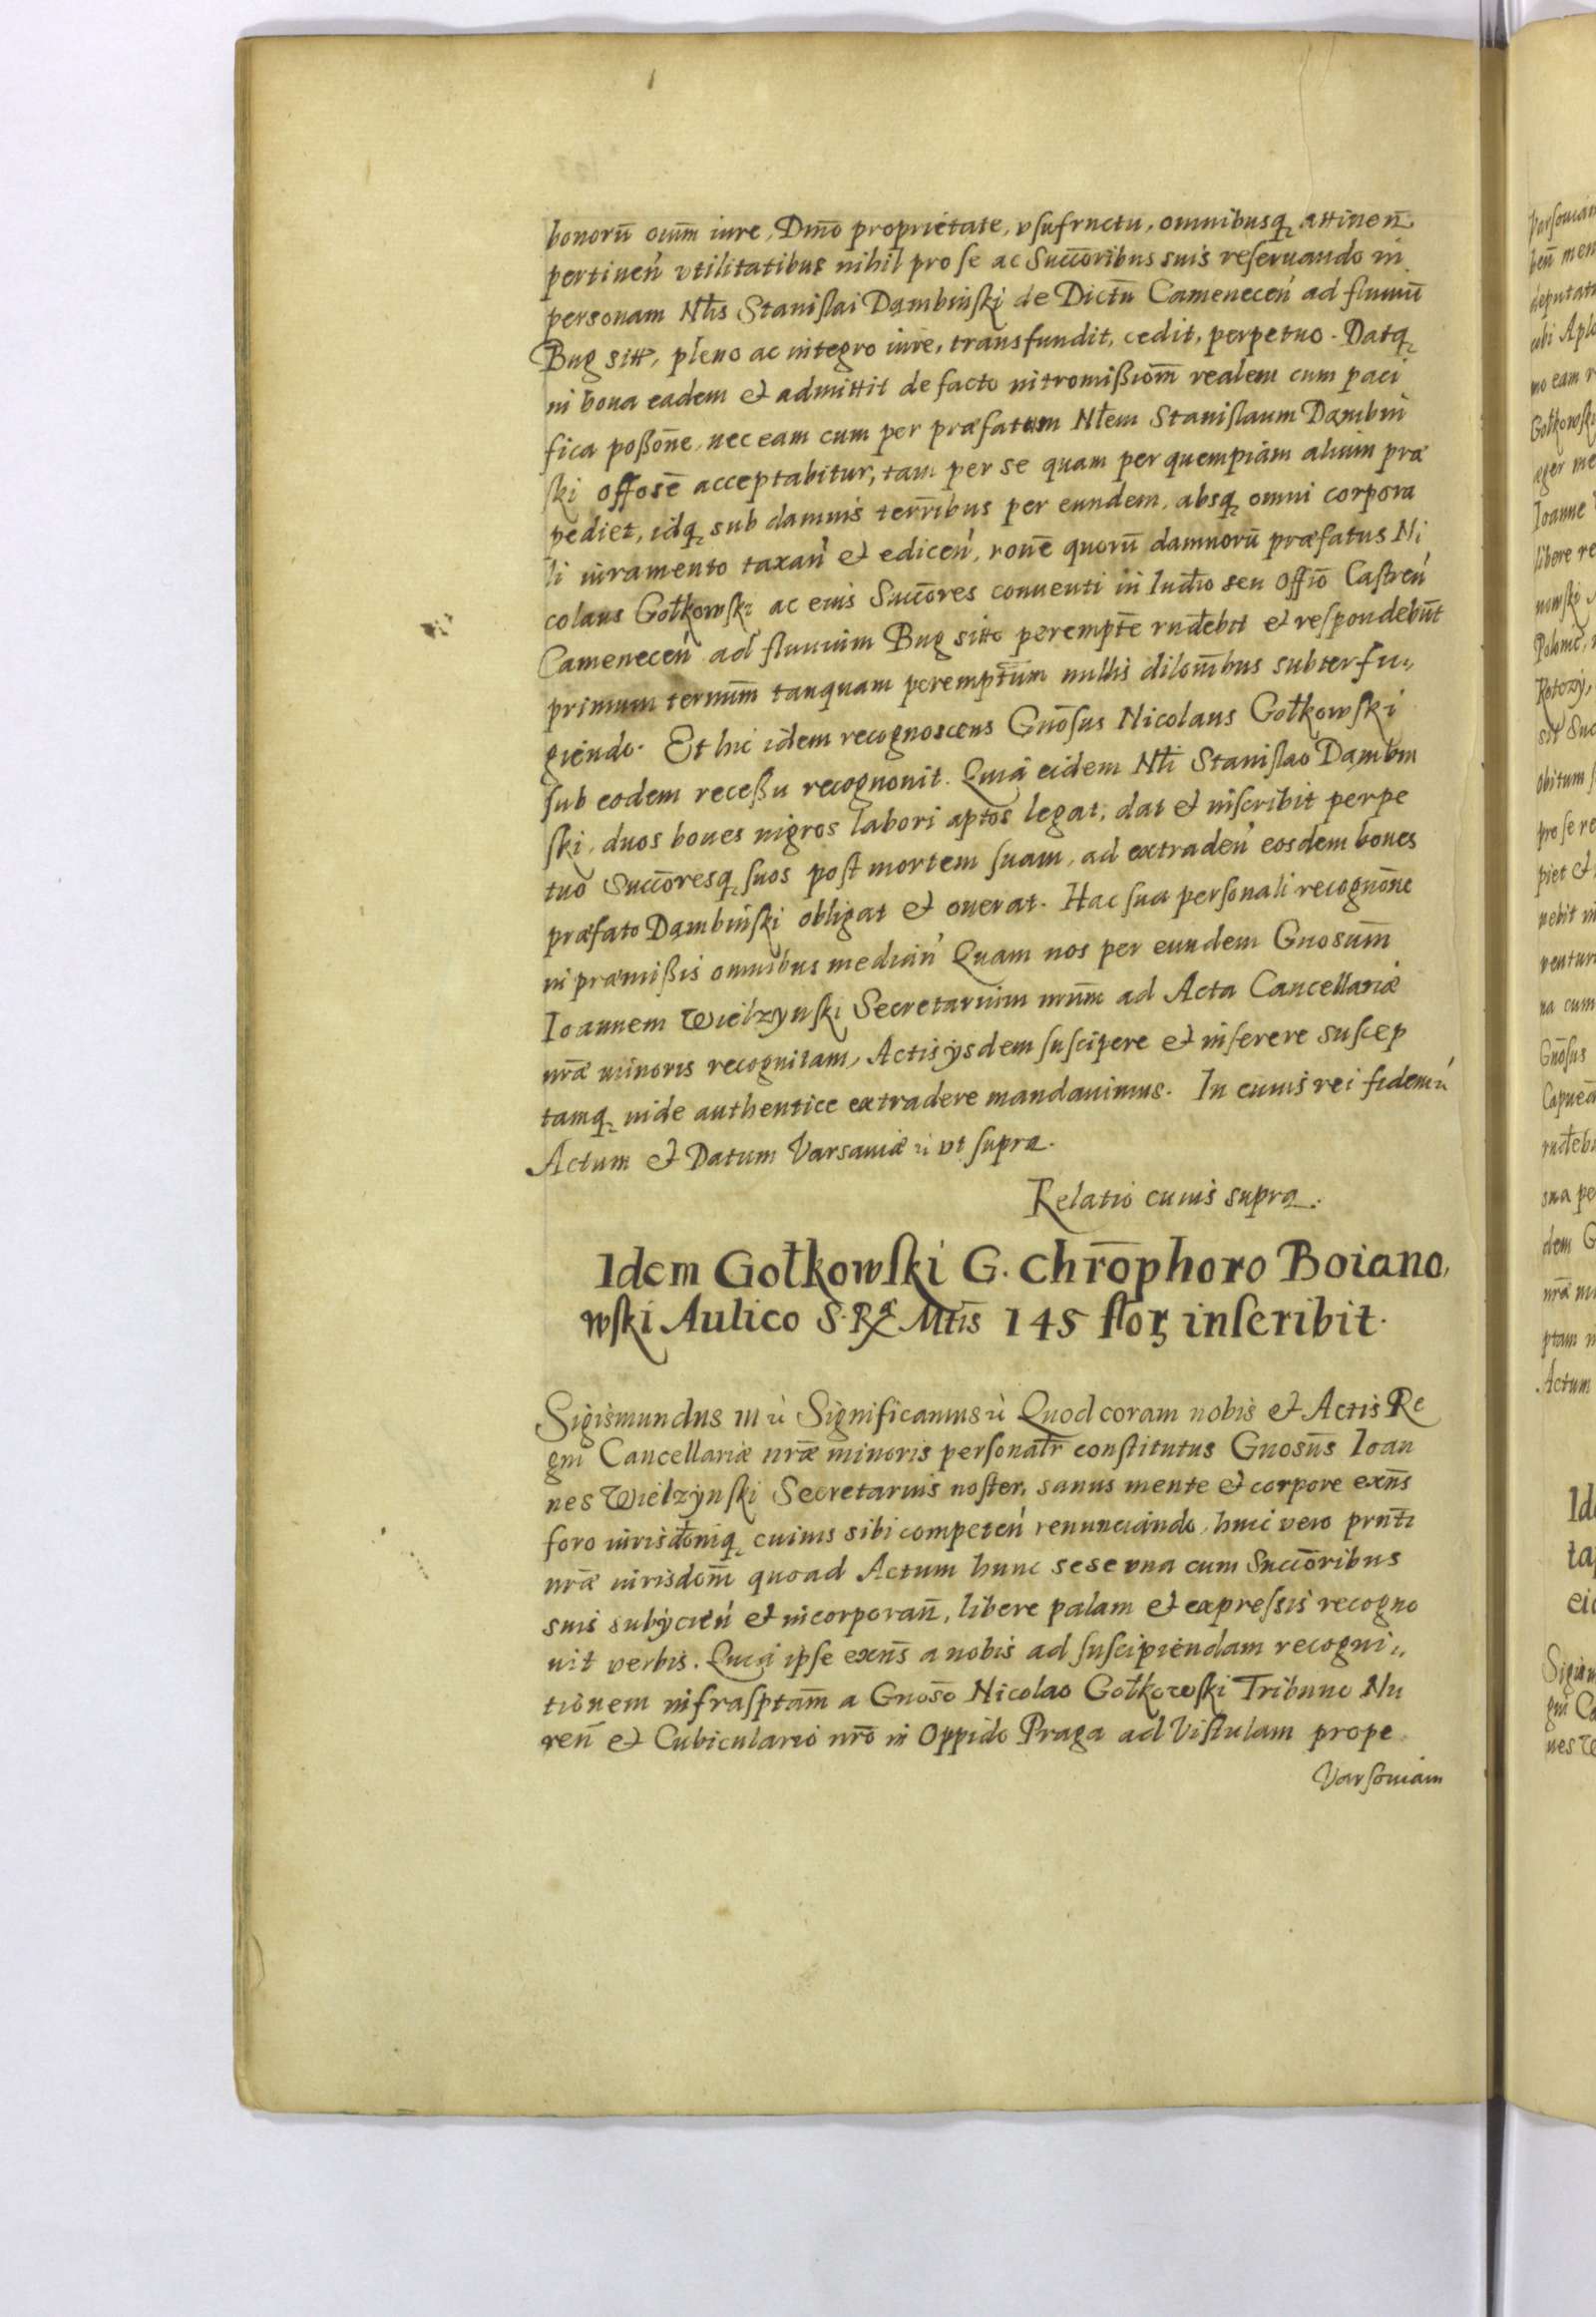 bonorū oīum iure, Dmō proprietate, vsufructu, omnibusq̨ attinen̄
pertinen̄ vtilitatibus nihil pro se ac Succōribus suis reseruando in
personam Nłis Stanislai Dąmbinski de Dictū Camenecen̄ ad fluuiū
Bug sitt, pleno ac integro iure, transfundit, cedit, perpetuo. Datq̨
in bona eadem et admittit de facto intromißiōm realem cum paci
fica poßōne, nec eam cum per præfatum Nłem Stanislaum Dąmbin
ski offosē acceptabitur, tam per se quam per quempiam alium præ
pediet, idq̨ sub damnis terrībus per eundem, absq̨ omni corpora
li iuramento taxan̄ et edicen̄, ronē quorū damnorū præfatus Ni
colaus Gołkowski ac eius Succōres conuenti in Iudio seu Offio Castren̄
Camenecen̄ ad fluuium Bug sitto perempte rndebit et respondebūt
primum termm̄ tanquam peremptum nullis dilonībus subterfu„
giendo. Et hic idem recognoscens Gnōsus Nicolaus Gołkowski
sub eodem receßu recognouit. Quia eidem Nłi Stanislao Dąmbin
ski, duos boues nigros labori aptos legat, dat et inscribit perpe
tuo Succōresq̨ suos post mortem suam, ad extraden̄ eosdem boues
præfato Dąmbinski obligat et onerat. Hac sua personali recognōne
in præmißis omnibus median̄ Quam nos per eundem Gnosum̄
Ioannem Wielzynski Secretarium nrūm ad Acta Cancellariæ
nræ minoris recognitam, Actis ijsdem suscipere et inserere suscep
tamq̨ inde authentice extradere mandauimus. In cuius rei fidem ū
Actum et Datum Varsauiæ ū vt supra.
Relatio cuius supra.
Idem Gołkowski G. Chrōphoro Boiano,
wski Aulico S. Ræ Mtīs 145 flor inscribit.
Sigismundus III ū Significamus ū Quod coram nobis et Actis Re
gni Cancellariæ nræ minoris personałr constitutus Gnosūs Ioan
nes Wielzynski Secretarius noster, sanus mente et corpore exn̄s
foro iurisdoniq̨ cuiuis sibi competen̄ renunciando, huic vero prnti
nræ iurisdom̄ quoad Actum hunc sese vna cum Succōribus
suis subijcien̄ et incorporan̄, libere palam et expressis recogno
uit verbis. Quia ipse exn̄s a nobis ad suscipiendam recogni„
tionem infrasptam̄ a Gnosō Nicolao Gołkowski Tribuno Nu
ren̄ et Cubiculario nrō in Oppido Praga ad Vistulam prope
Varsouiam